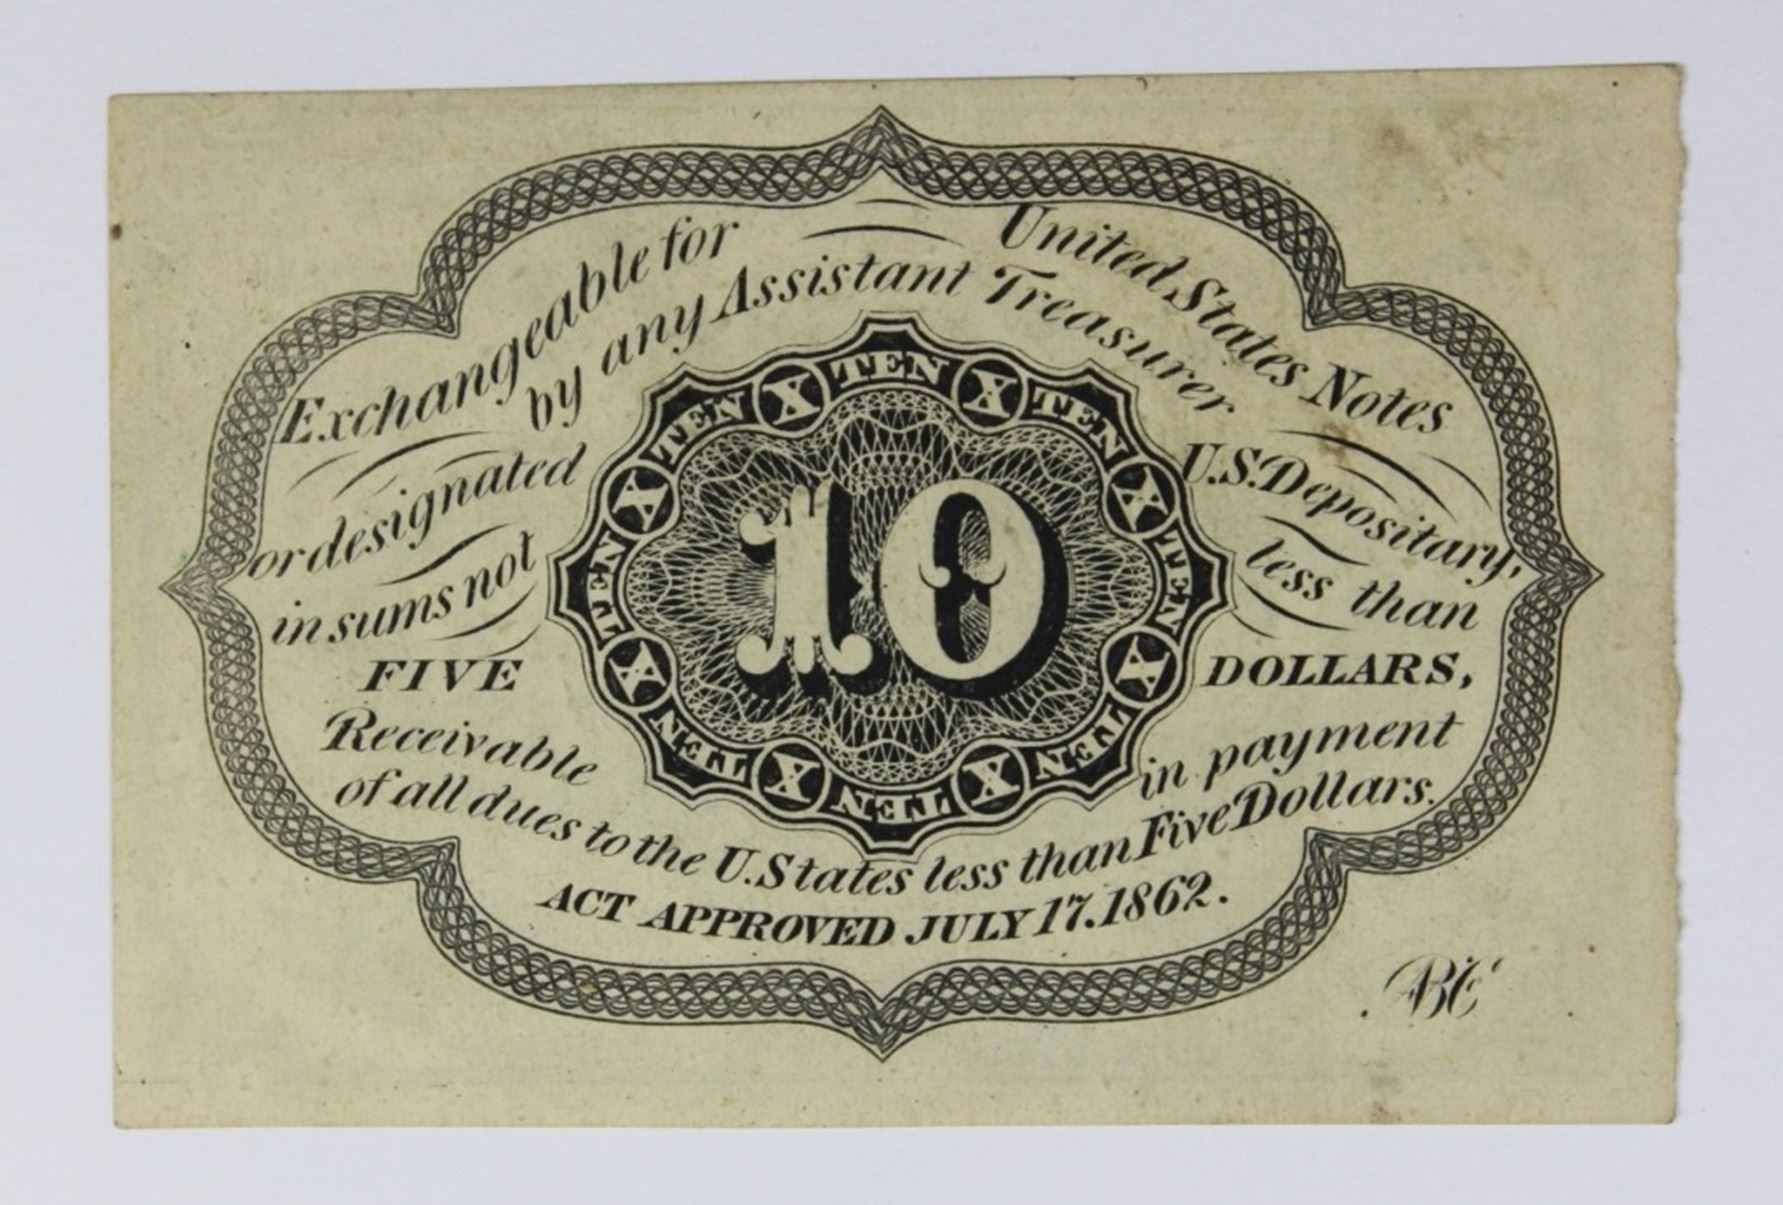 Exchangeable for United States Notes
by any Assistant Treasurer
or designated U.S. Depositary,
in sums not less than
FIVE DOLLARS,
Receivable in payment
of all dues to the U. States less than Five Dollars.
ACT APPROVED JULY 17. 1862.
TEN X TEN X TEN X TEN X TEN X TEN X TEN X TEN X
10
ABC